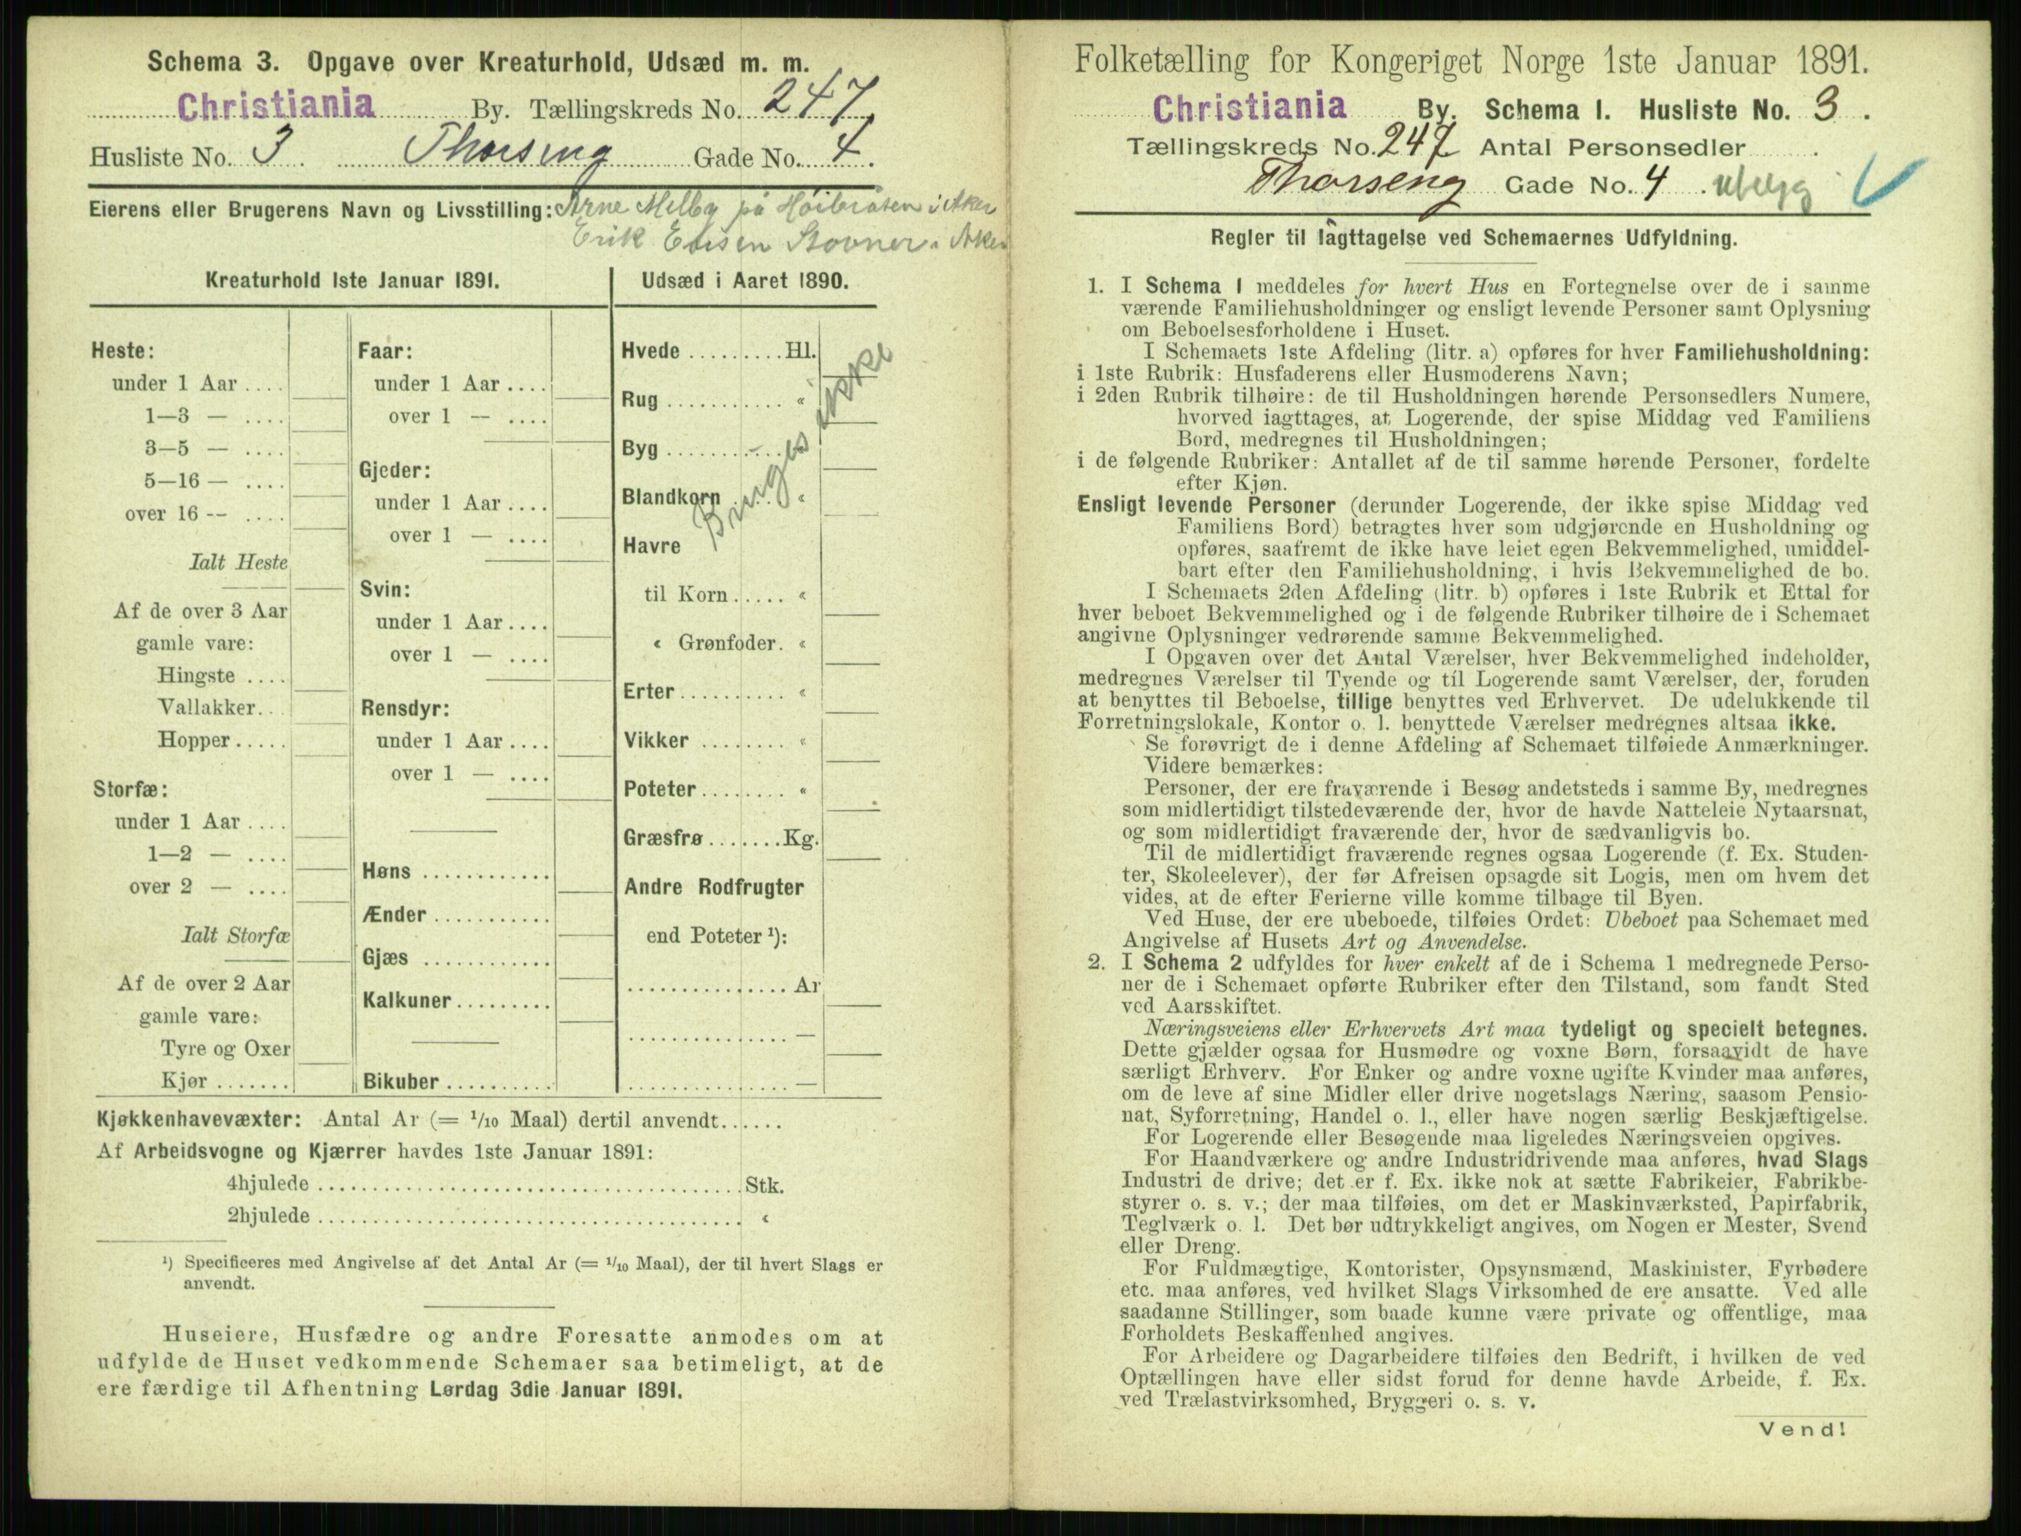 Schema 3. Opgave over Kreaturhold, Udsæd m. m.
Christiania By. Tællingskreds No. 247
Husliste No. 3. Thorseng Gade No. 4.
Eierens eller Brugerens Navn og Livsstilling: Arne Melby på Høibråten i Aker
Erik Ensen Stovner i Aker
Kreaturhold 1ste Januar 1891.
Heste:
under 1 Aar ....
1—3 — ....
3—5 — ....
5—16 — ....
over 16 -- ....
Ialt Heste
Af de over 3 Aar
gamle vare:
Hingste ....
Vallakker..
Hopper .....
Storfæ:
under 1 Aar ....
1—2 — ....
over 2 — ....
Ialt Storfæ
Af de over 2 Aar
gamle vare:
Tyre og Oxer
Kjør .......
Faar:
under 1 Aar ....
over 1 — ....
Gjeder:
under 1 Aar ....
over 1 — ....
Svin:
under 1 Aar ....
over 1 — ....
Rensdyr:
under 1 Aar ....
over 1 — ....
Høns ............
Ænder ...........
Gjæs ............
Kalkuner .........
Bikuber ..........
Udsæd i Aaret 1890.
Hvede ......... Hl.
Rug ........... «
Byg ........... «
Blandkorn ..... «
Havre
til Korn ..... «
« Grønfoder. «
Erter .......... «
Vikker ........ «
Poteter ........ «
Græsfrø ....... Kg.
Andre Rodfrugter
end Poteter ¹):
............... Ar
............... —
............... —
Bruges ikke
Kjøkkenhavevæxter: Antal Ar (= 1/10 Maal) dertil anvendt......
Af Arbeidsvogne og Kjærrer havdes 1ste Januar 1891:
4hjulede ........................................ Stk.
2hjulede ........................................ «
¹) Specificeres med Angivelse af det Antal Ar (= 1/10 Maal), der til hvert Slags er
anvendt.
Huseiere, Husfædre og andre Foresatte anmodes om at
udfylde de Huset vedkommende Schemaer saa betimeligt, at de
ere færdige til Afhentning Lørdag 3die Januar 1891.
Folketælling for Kongeriget Norge 1ste Januar 1891.
Christiania By. Schema I. Husliste No. 3.
Tællingskreds No. 247 Antal Personsedler .
Thorseng Gade No. 4. ubygg
Regler til Iagttagelse ved Schemaernes Udfyldning.
1. I Schema I meddeles for hvert Hus en Fortegnelse over de i samme
værende Familiehusholdninger og ensligt levende Personer samt Oplysning
om Beboelsesforholdene i Huset.
I Schemaets 1ste Afdeling (litr. a) opføres for hver Familiehusholdning:
i 1ste Rubrik: Husfaderens eller Husmoderens Navn;
i 2den Rubrik tilhøire: de til Husholdningen hørende Personsedlers Numere,
hvorved iagttages, at Logerende, der spise Middag ved Familiens
Bord, medregnes til Husholdningen;
i de følgende Rubriker: Antallet af de til samme hørende Personer, fordelte
efter Kjøn.
Ensligt levende Personer (derunder Logerende, der ikke spise Middag ved
Familiens Bord) betragtes hver som udgjørende en Husholdning og
opføres, saafremt de ikke have leiet egen Bekvemmelighed, umiddel-
bart efter den Familiehusholdning, i hvis Bekvemmelighed de bo.
I Schemaets 2den Afdeling (litr. b) opføres i 1ste Rubrik et Ettal for
hver beboet Bekvemmelighed og i de følgende Rubriker tilhøire de i Schemaet
angivne Oplysninger vedrørende samme Bekvemmelighed.
I Opgaven over det Antal Værelser, hver Bekvemmelighed indeholder,
medregnes Værelser til Tyende og til Logerende samt Værelser, der, foruden
at benyttes til Beboelse, tillige benyttes ved Erhvervet. De udelukkende til
Forretningslokale, Kontor o. l. benyttede Værelser medregnes altsaa ikke.
Se forøvrigt de i denne Afdeling af Schemaet tilføiede Anmærkninger.
Videre bemærkes:
Personer, der ere fraværende i Besøg andetsteds i samme By, medregnes
som midlertidigt tilstedeværende der, hvor de havde Natteleie Nytaarsnat,
og som midlertidigt fraværende der, hvor de sædvanligvis bo.
Til de midlertidigt fraværende regnes ogsaa Logerende (f. Ex. Studen-
ter, Skoleelever), der før Afreisen opsagde sit Logis, men om hvem det
vides, at de efter Ferierne ville komme tilbage til Byen.
Ved Huse, der ere ubeboede, tilføies Ordet: Ubeboet paa Schemaet med
Angivelse af Husets Art og Anvendelse.
2. I Schema 2 udfyldes for hver enkelt af de i Schema 1 medregnede Perso-
ner de i Schemaet opførte Rubriker efter den Tilstand, som fandt Sted
ved Aarsskiftet.
Næringsveiens eller Erhvervets Art maa tydeligt og specielt betegnes.
Dette gjælder ogsaa for Husmødre og voxne Børn, forsaavidt de have
særligt Erhverv. For Enker og andre voxne ugifte Kvinder maa anføres,
om de leve af sine Midler eller drive nogetslags Næring, saasom Pensio-
nat, Syforretning, Handel o. l., eller have nogen særlig Beskjæftigelse.
For Logerende eller Besøgende maa ligeledes Næringsveien opgives.
For Haandværkere og andre Industridrivende maa anføres, hvad Slags
Industri de drive; det er f. Ex. ikke nok at sætte Fabrikeier, Fabrikbe-
styrer o. s. v.; der maa tilføies, om det er Maskinværksted, Papirfabrik,
Teglværk o. l. Det bør udtrykkeligt angives, om Nogen er Mester, Svend
eller Dreng.
For Fuldmægtige, Kontorister, Opsynsmænd, Maskinister, Fyrbødere
etc. maa anføres, ved hvilket Slags Virksomhed de ere ansatte. Ved alle
saadanne Stillinger, som baade kunne være private og offentlige, maa
Forholdets Beskaffenhed angives.
For Arbeidere og Dagarbeidere tilføies den Bedrift, i hvilken de ved
Optællingen have eller sidst forud for denne havde Arbeide, f. Ex.
ved Trælastvirksomhed, Bryggeri o. s. v.
Vend!